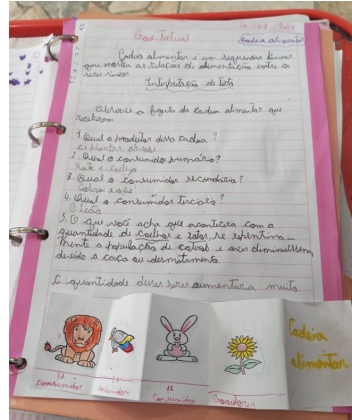 Base Textual
Cadeia alimentar
Cadeia alimentar é um sequencia linear
que mostra as relações de alimentação entre os
seres vivos
Interpretação de texto
Observe a figura da cadeia alimentar que
receberam
1. Qual o produtor dessa cadeia?
As plantas,
2. Qual o consumidor primário?
Rato e coelho
3. Qual o consumidor secundário?
Cobra e ave
4. Qual o consumidor terciário?
O leão
5. O que você acha que aconteceria com a
quantidade de coelhos e ratos, se repentina-
mente a população de cobras e aves diminuíssem
devido a caça ou desmatamento.
A quantidade desses seres aumentaria muito
Cadeia
alimentar
3º
consumidor
2º
consumidor
1º
Consumidor
Produtores